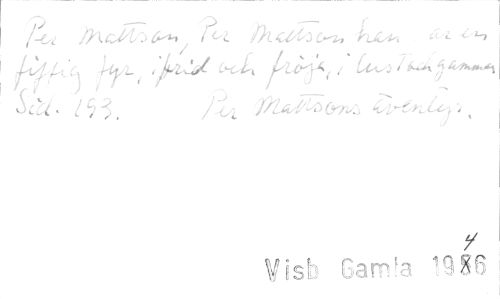 Per Mattson, Per Mattson han är en
fiffig fyr, i frid och fröjd, i lust och gamman
Sid. 193. Per Mattsons äventyr.
Visb Gamla 1946